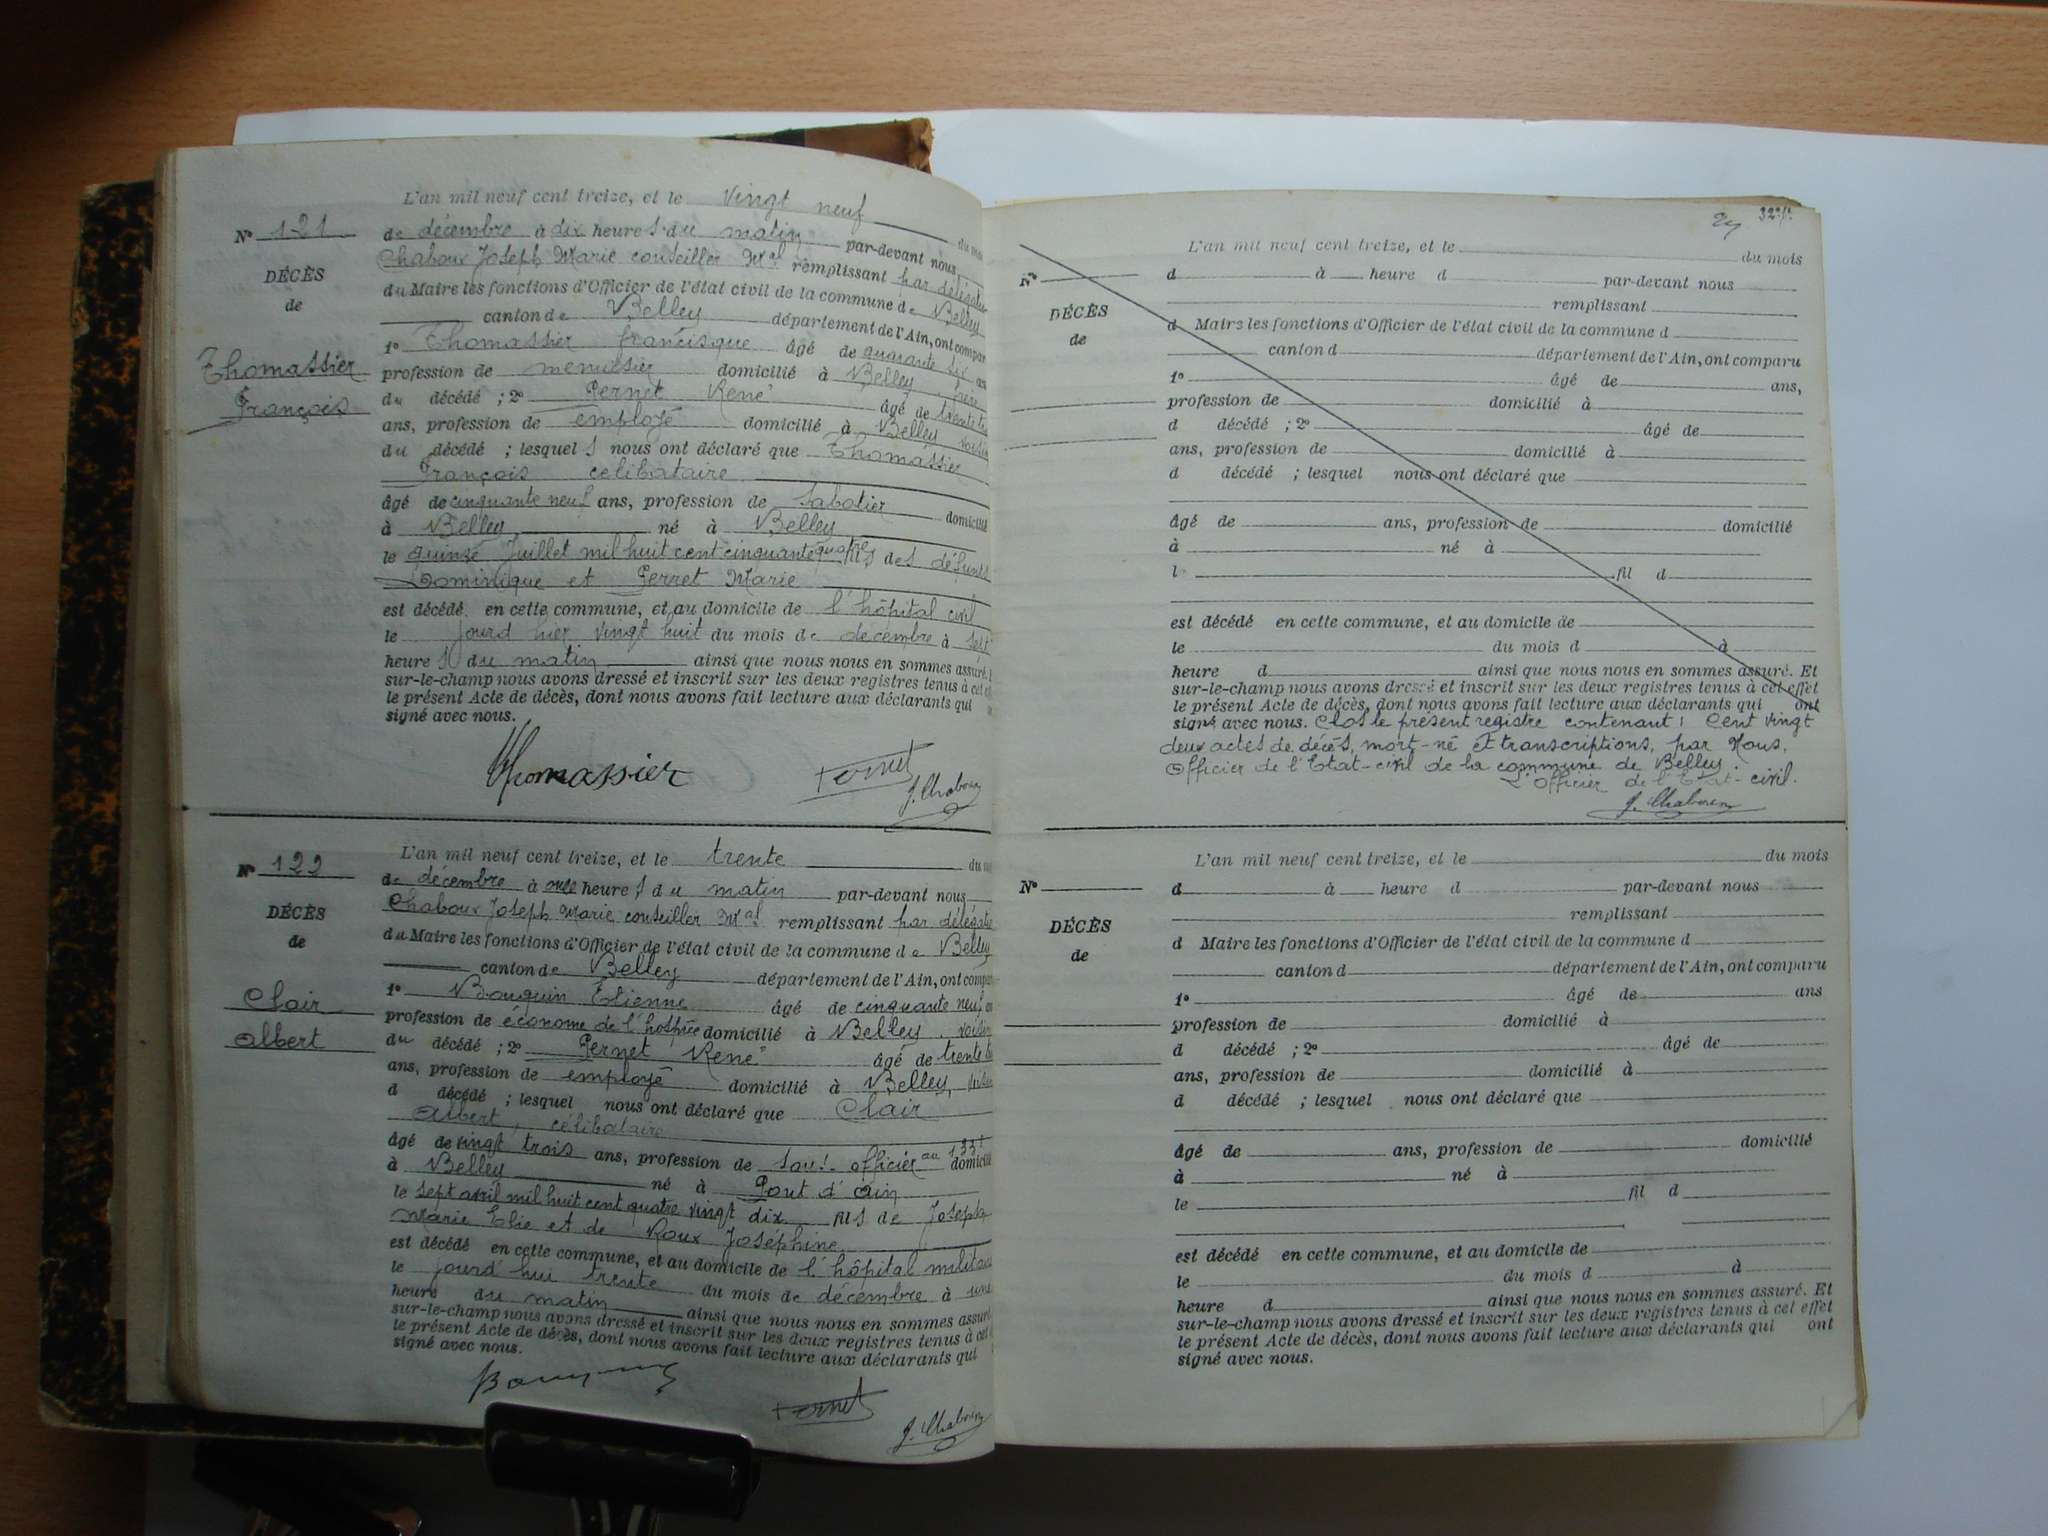 L'an mil neuf cent treize, et le Vingt neuf du mois
N° 121
de décembre à dix heures du matin par-devant nous
Chaboux Joseph Marie conseiller Mal remplissant par délégation
DÉCÈS
du Maire les fonctions d'Officier de l'état civil de la commune de Belley
de
canton de Belley département de l'Ain, ont compar
1° Thomassier francisque âgé de quarante six ans
Thomassier
profession de menuisier domicilié à Belley, frère
François
du décédé ; 2° Pernet René âgé de trente
ans, profession de employé domicilié à Belley voisin
du décédé ; lesquels nous ont déclaré que Thomassier
François celibataire
âgé de cinquante neuf ans, profession de sabotier domicilié
à Belley né à Belley
le quinze Juillet mil huit cent cinquante quatre fils des défunts
Dominique et Perret Marie
est décédé en cette commune, et au domicile de l'hôpital civil
le jourd'hier vingt huit du mois de decembre à sept
heures du matin ainsi que nous nous en sommes assuré.
sur-le-champ nous avons dressé et inscrit sur les deux registres tenus à cet
le présent Acte de décès, dont nous avons fait lecture aux déclarants qui
signé avec nous.
Thomassier Pernet
J. Chaboux
L'an mil neuf cent treize, et le trente du
N° 122
de décembre à onze heures du matin par-devant nous
Chaboux Joseph Marie conseiller Mal remplissant par délégation
DÉCÈS
du Maire les fonctions d'Officier de l'état civil de la commune de Belley
de
canton de Belley département de l'Ain, ont compar
Clair
1° Bouquin Etienne âgé de cinquante neuf
profession de économe de l'hospice domicilié à Belley, voisin
Albert
du décédé ; 2° Pernet René âgé de trente
ans, profession de employé domicilié à Belley,
d décédé ; lesquel nous ont déclaré que Clair
Albert, célibataire
âgé de vingt trois ans, profession de sous-officier au 133e domicilié
à Belley né à Pont d'Ain
le sept avril mil huit cent quatre vingt dix fils de Joseph
Marie Elie et de Roux Josephine
est décédé en cette commune, et au domicile de l'hôpital militaire
le jourd'hui trente du mois de décembre à une
heure du matin ainsi que nous nous en sommes assuré
sur-le-champ nous avons dressé et inscrit sur les deux registres tenus à cet
le présent Acte de décès, dont nous avons fait lecture aux déclarants qui
signé avec nous.
Bouquin Pernet
J. Chaboux
L'an mil neuf cent treize, et le du mois
N° d à heure d par-devant nous
remplissant
DÉCÈS
d Maire les fonctions d'Officier de l'état civil de la commune d
de
canton d département de l'Ain, ont comparu
1° âgé de ans,
profession de domicilié à
d décédé ; 2° âgé de
ans, profession de domicilié à
d décédé ; lesquel nous ont déclaré que
âgé de ans, profession de domicilié
à né à
l fil d
est décédé en cette commune, et au domicile de
le du mois d à
heure d ainsi que nous nous en sommes assuré. Et
sur-le-champ nous avons dressé et inscrit sur les deux registres tenus à cet effet
le présent Acte de décès, dont nous avons fait lecture aux déclarants qui ont
signé avec nous. Clos le présent registre contenant : Cent vingt
deux actes de décès, mort-né et transcriptions, par Nous,
Officier de l'Etat-civil de la commune de Belley.
L'Officier de l'Etat-civil.
J. Chaboux
L'an mil neuf cent treize, et le du mois
N° d à heure d par-devant nous
remplissant
DÉCÈS
d Maire les fonctions d'Officier de l'état civil de la commune d
de
canton d département de l'Ain, ont comparu
1° âgé de ans
profession de domicilié à
d décédé ; 2° âgé de
ans, profession de domicilié à
d décédé ; lesquel nous ont déclaré que
âgé de ans, profession de domicilié
à né à
le fil d
est décédé en cette commune, et au domicile de
le du mois d à
heure d ainsi que nous nous en sommes assuré. Et
sur-le-champ nous avons dressé et inscrit sur les deux registres tenus à cet effet
le présent Acte de décès, dont nous avons fait lecture aux déclarants qui ont
signé avec nous.